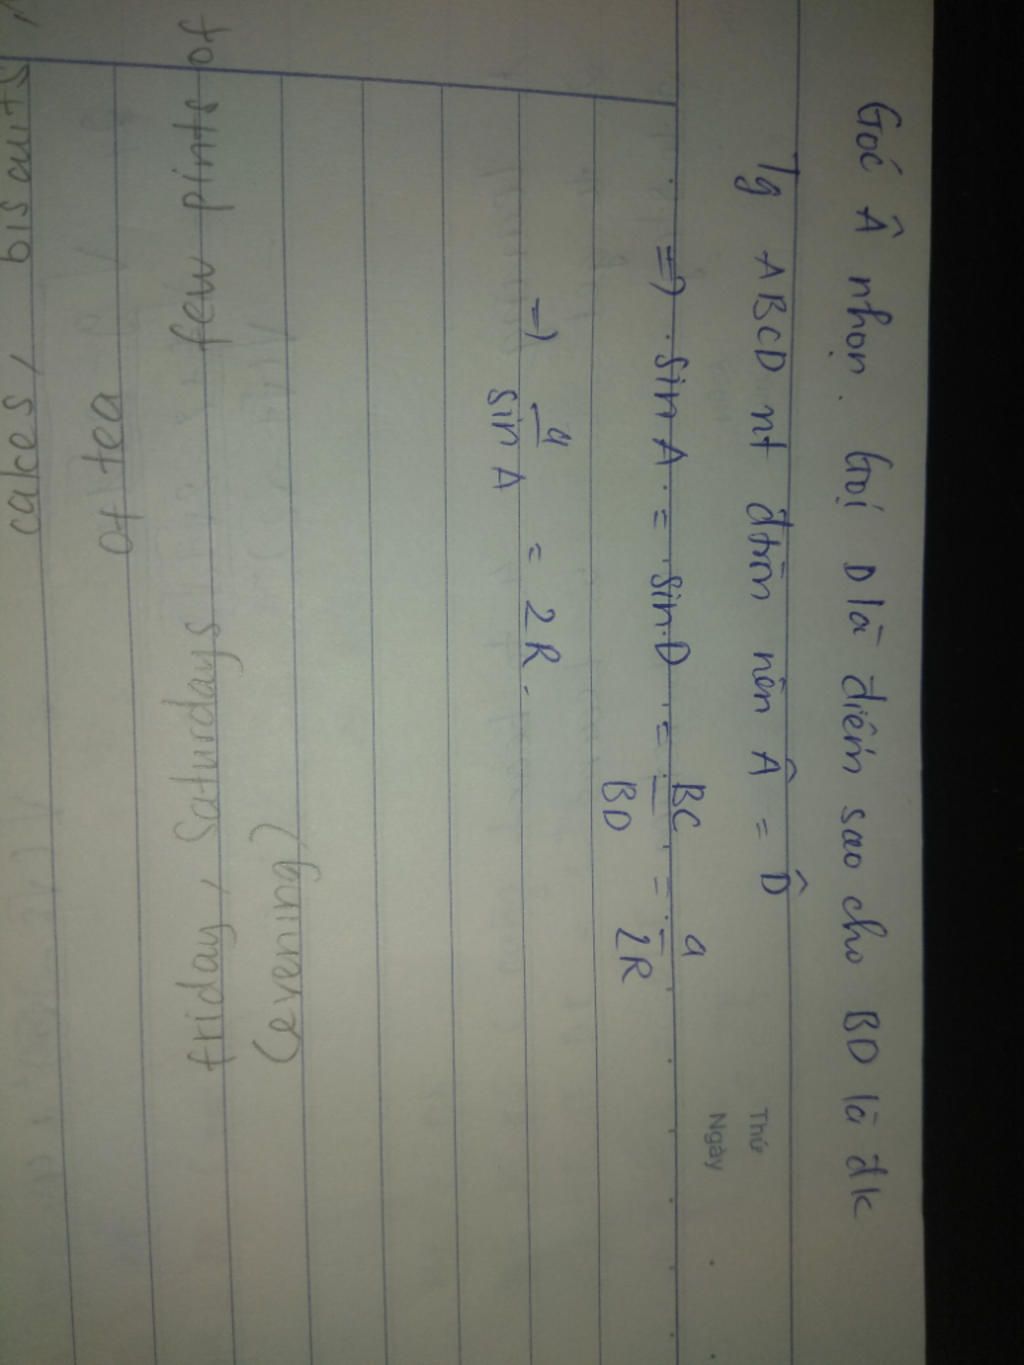 Góc Â nhọn. Gọi D là điểm sao cho BD là đk
Tg ABCD nt đtròn nên Â = D̂
Thứ
Ngày
=> sin A = sin D = BC/BD = a/2R
=> a/sin A = 2R.
few pints of
friday, Saturdays
(evening)
cakes, biscuits
of tea